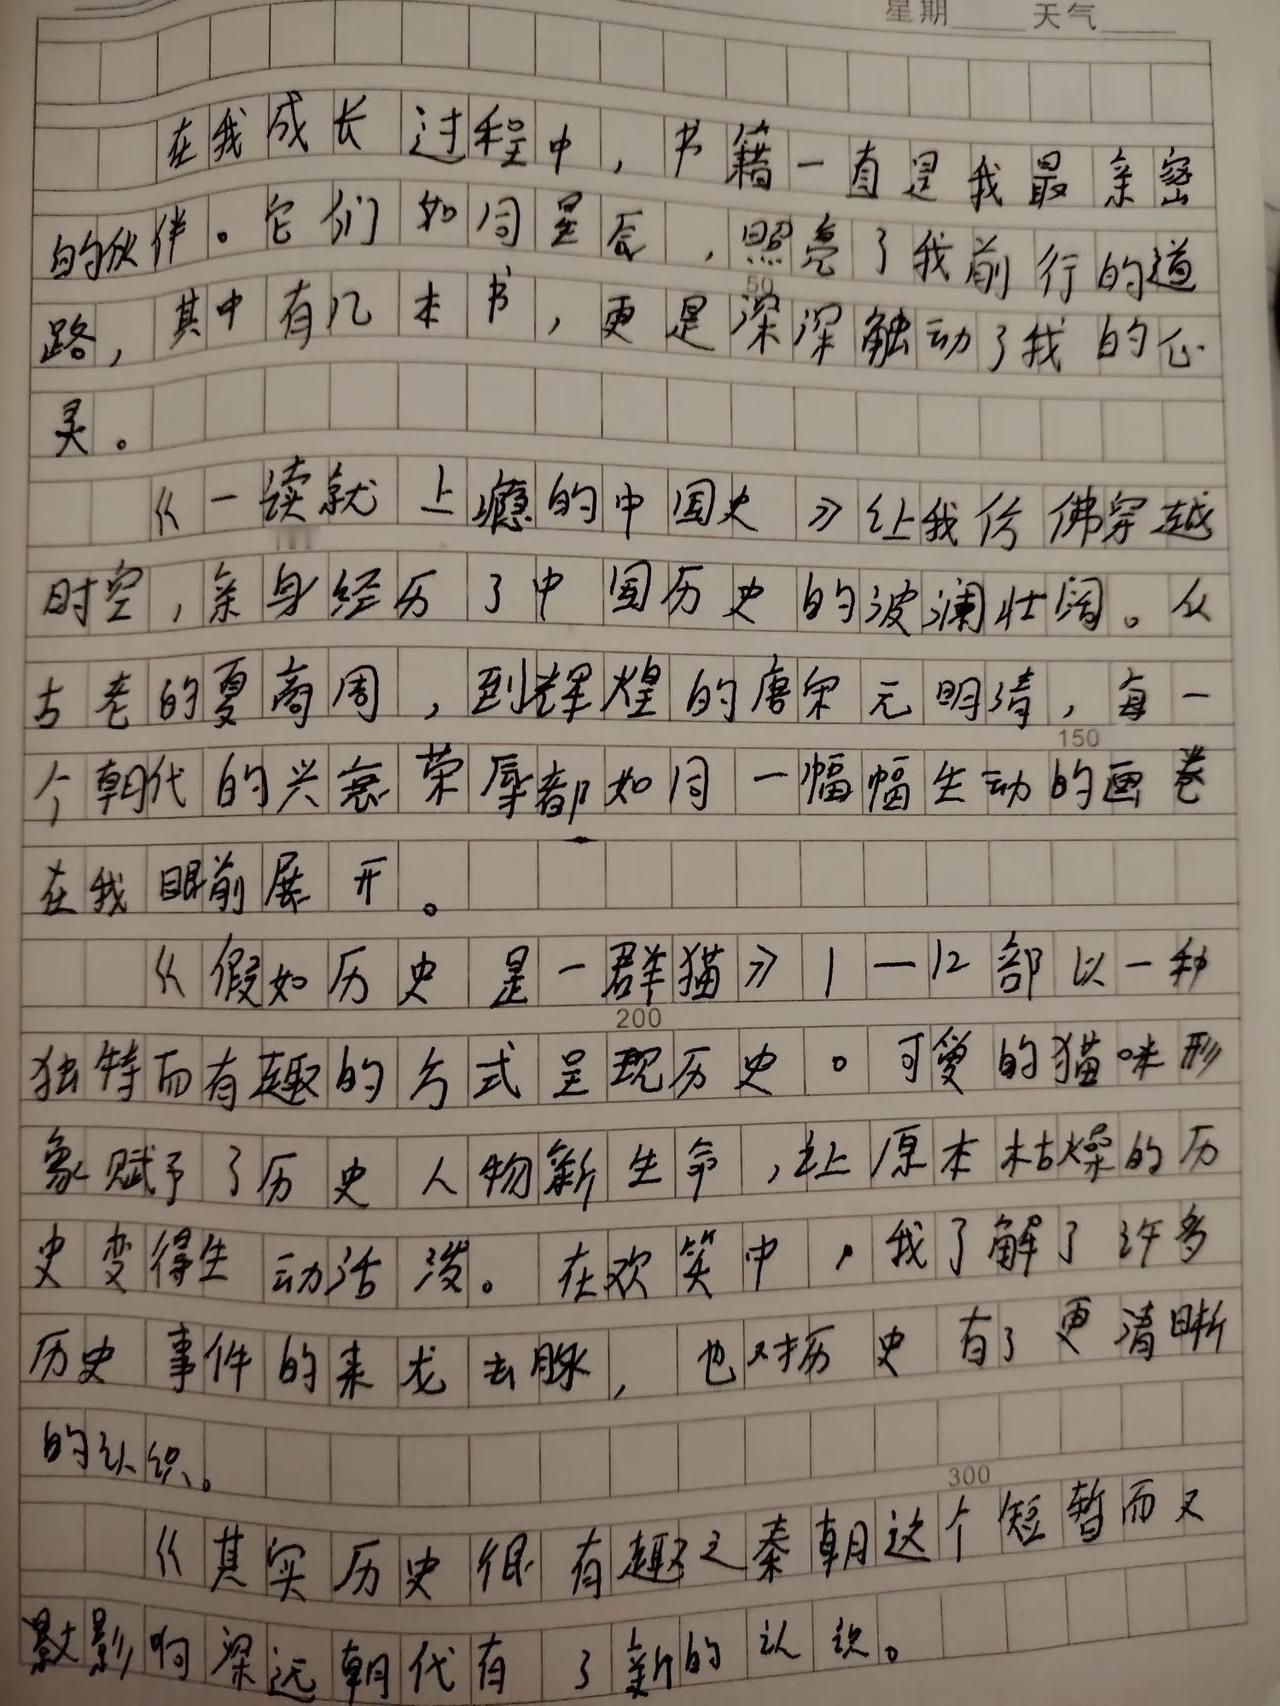 星期 天气
在我成长过程中，书籍一直是我最亲密
的伙伴。它们如同星辰，照亮了我前行的道
50
路，其中有几本书，更是深深触动了我的心
灵。
《一读就上瘾的中国史》让我仿佛穿越
时空，亲身经历了中国历史的波澜壮阔。从
古老的夏商周，到辉煌的唐宋元明清，每一
150
个朝代的兴衰荣辱都如同一幅幅生动的画卷
在我眼前展开。
《假如历史是一群猫》1—12部以一种
200
独特而有趣的方式呈现历史。可爱的猫咪形
象赋予了历史人物新生命，让原本枯燥的历
史变得生动活泼。在欢笑中，我了解了许多
历史事件的来龙去脉，也对历史有了更清晰
的认识。
300
《其实历史很有趣之秦朝这个短暂而又
影响深远朝代有了新的认识。